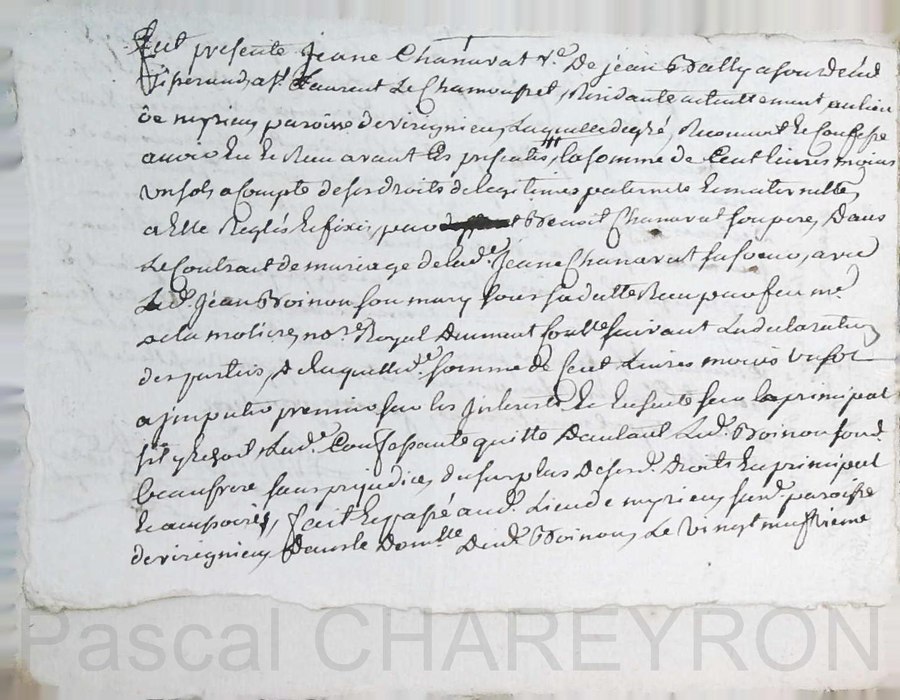 Fut presente Jeane Chanavat v.e De jean Bally a son deced
a st Laurent Le Chamousset, Residante actuellement au lieu
de myrieu paroisse de virignieu, Laquelle de gré, Reconnoit Et Confesse
avoir Eu Et Reçu avant les presentes, la somme de Cent Livres moins
un sols a Compte de ses droits de legitimes paternelle Et maternelle
a Elle Reglés Et fixés, par Benoit Chanavat son pere, Dans
Le Contract de mariage de lad.e Jeane Chanavat sa soeur, avec
Led. Jean Boinon son mary sous sa datte Recu par feu me
de la moliere, no.re Royal Duement Contt.e suivant La declaration
des parties, De laquelle d.e somme de Cent Livres moins un sol
a jmputer premier sur les Jnterests Et En suitte sur le principal
sil y Echoit Lad.e Confessante quitte Dautant Led. Boinon son d.
beau frere sans prejudice du surplus De ses d. Droits En principal
Et accessoires, fait Et passé aud. Lieu de myrieu sus d. paroisse
de virignieu, Dans le Dom.lle Dud. Boinon, Le vingt neufvieme
Pascal CHAREYRON